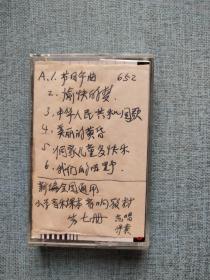 A. 1. 节日午曲 652
2. 愉快的梦
3. 中华人民共和国国歌
4. 美丽的黄昏
5. 侗家儿童多快乐
6. 我们的田野
新编全国通用
小学音乐课本音响教材
第七册 范唱
伴奏